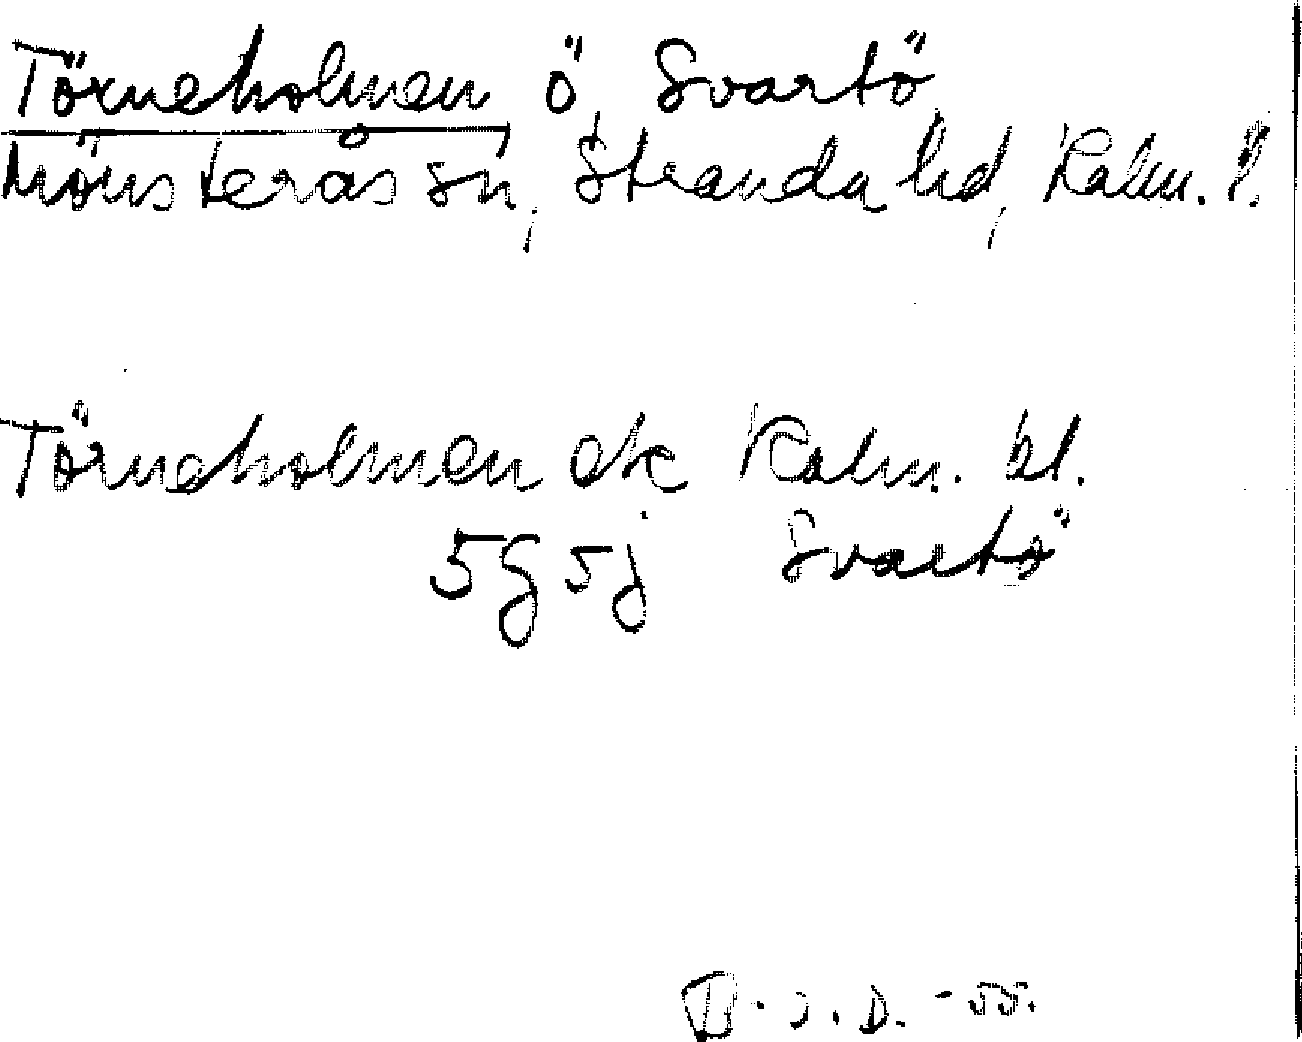 Törneholmen, ö, Svartö,
Mönsterås sn, Stranda hd, Kalm. l.
Törneholmen ek Kalm. bl.
5g5j Svartö
B.J.D. -55.